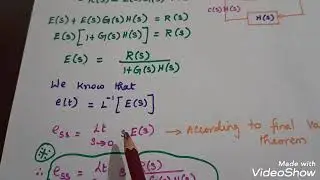 C(s)H(s)
H(s)
E(s) + E(s) G(s) H(s) = R(s)
E(s) [1 + G(s) H(s)] = R(s)
E(s) = R(s) / 1+G(s) H(s)
We know that
e(t) = L⁻¹ [E(s)]
ess = Lt s→0 s E(s) → According to final
theorem
ess = Lt R(s)
Made with
VideoShow